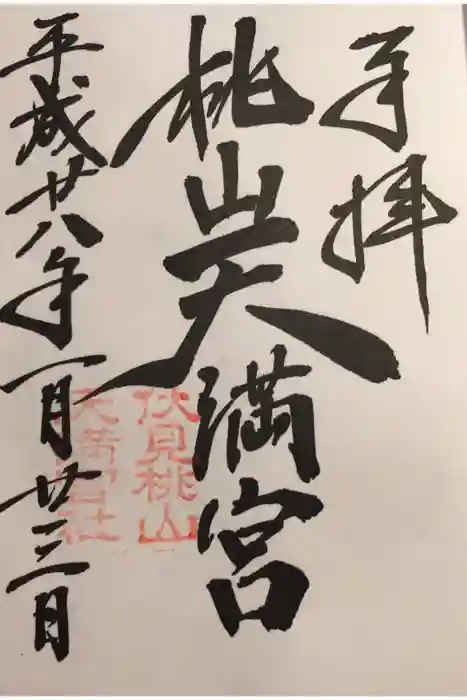 奉拝
桃山天満宮
伏見桃山
天満宮社
平成廿八年一月廿三日